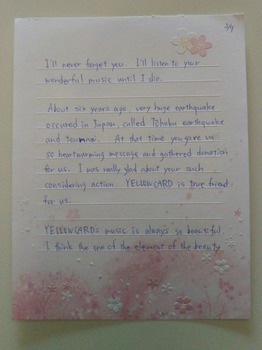 3/4
I'll never forget you. I'll listen to your
wonderful music until I die.
About six years ago, very huge earthquake
occured in Japan, called Tohoku earthquake
and tsunami. At that time you gave us
so heartwarming message and gathered donation
for us. I was really glad about your such
considering action. YELLOWCARD is true friend
for us.
YELLOWCARDs music is always so beautiful
I think the one of the element of the beauty